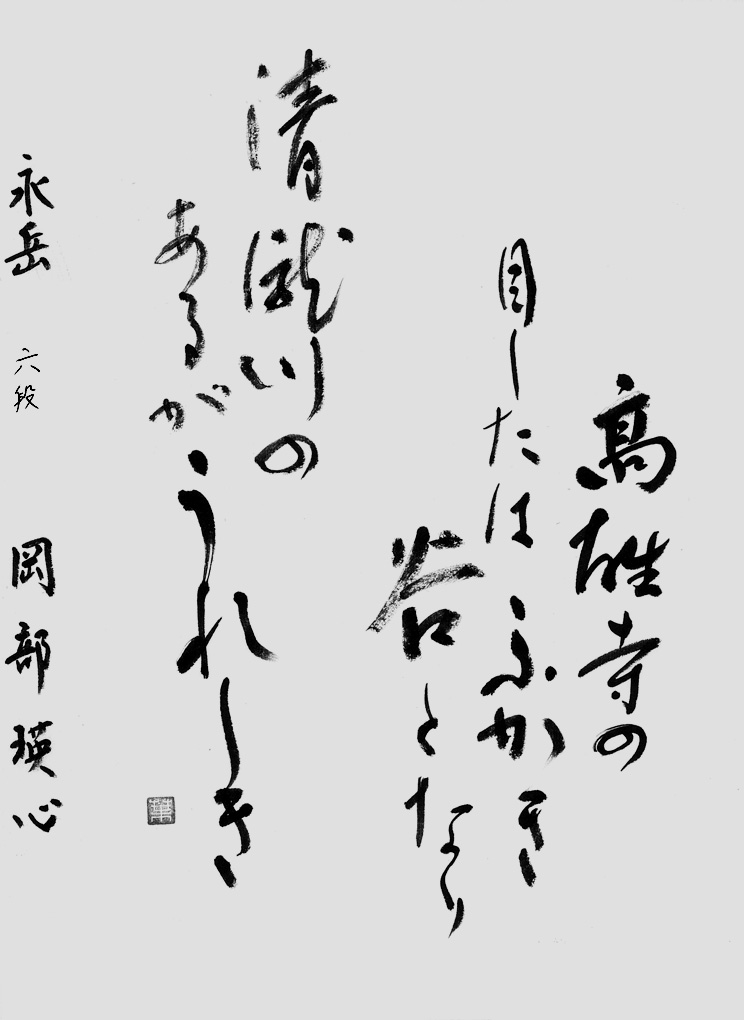 高雄寺の
目したは ふかき
谷となり
清瀧川の
あるが うれしき
永岳 六段 岡部瑛心